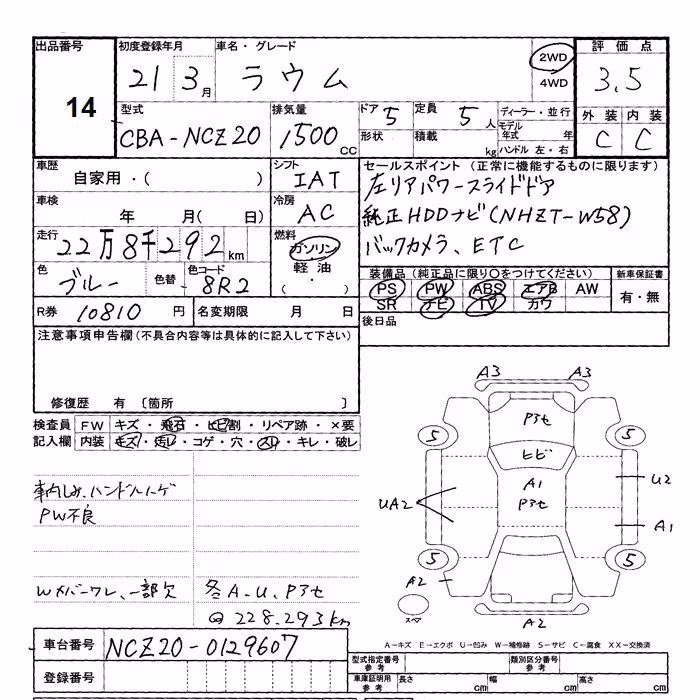 出品番号 初度登録年月 車名・グレード 2WD 評価点
14 21 3月 ラウム 4WD 3.5
型式 排気量 ドア 5 定員 5人 ディーラー・並行 外装 内装
CBA-NCZ20 1500cc 形状 積載 kg モデル年式 年 C C
ハンドル 左・右
車歴 シフト セールスポイント (正常に機能するものに限ります)
自家用・( ) IAT 左リアパワースライドドア
車検 冷房 純正HDDナビ(NHZT-W58)
年 月( 日) AC バックカメラ、ETC
走行 燃料
22万8千292km ガソリン
色 色替 色コード 軽油 装備品 (純正品に限り○をつけてください) 新車保証書
ブルー 8R2 ( ・ ) PS PW ABS エアB AW 有・無
SR ナビ TV カワ
R券 10810円 名変期限 月 日 後日品
注意事項申告欄(不具合内容等は具体的に記入して下さい)
修復歴 有 〔箇所 〕
検査員 FW キズ・飛石・ヒビ割・リペア跡・×要
記入欄 内装 キズ・汚レ・コゲ・穴・スレ・キレ・破レ
A3 A3
Pアセ
5 5
ヒビ
A1
Pアセ
UA2 U2
A1
5 5
A2
スペア
A2
車内しみ、ハンドルハゲ
PW不良
Wメバーワレ、一部欠 各A.U.Pアセ
228.293km
車台番号 NCZ20-0129607
登録番号
A-キズ E-エクボ U-凹み W-補修跡 S-サビ C-腐食 XX-交換済
型式指定番号 参考 類別区分番号 参考
車庫証明用 参考 長さ cm 幅 cm 高さ cm